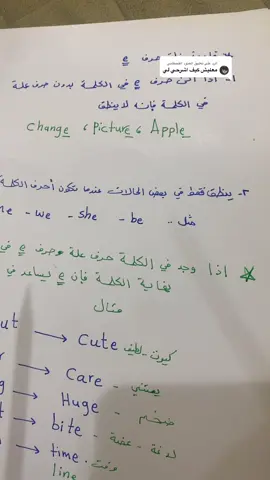 حرف e
معليش كيف اشرحي لي
١- اذا أتى حرف e في الكلمة بدون حرف علة
في الكلمة فإنه لا ينطق
change ، Picture ، Apple
٢- ينطق فقط في بعض الحالات عندما تكون أحرف الكلمة
مثل .. he - we - she - be
اذا وجد في الكلمة حرف علة وحرف e في
نهاية الكلمة فإن e يساعد في
مثال
ut → Cute كيوت - لطيف
→ Care يعتني
→ Huge ضخم
→ bite لدغة - عضة
→ time وقت
line